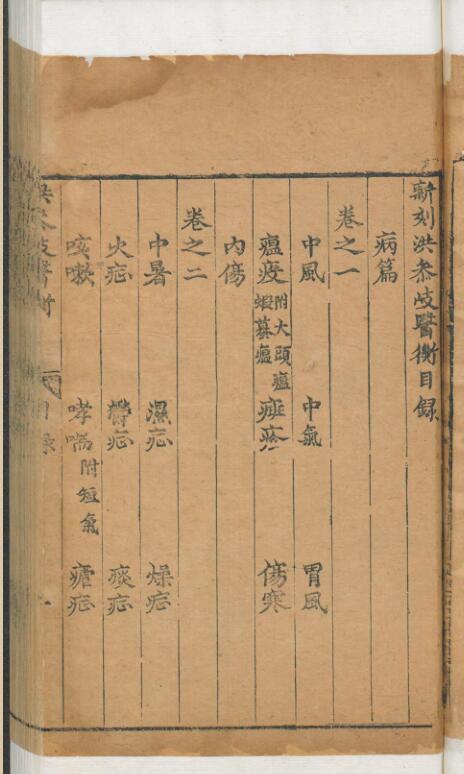 新刻洪叅岐醫衡目錄
病篇
卷之一
中風 中氣 胃風
瘟疫 附大頭瘟蝦蟇瘟 痓 傷寒
內傷
卷之二
中暑 濕症 燥症
火症 鬱症 痰症
咳嗽 哮喘 附短氣 瘧症
洪叅岐醫衡 目錄